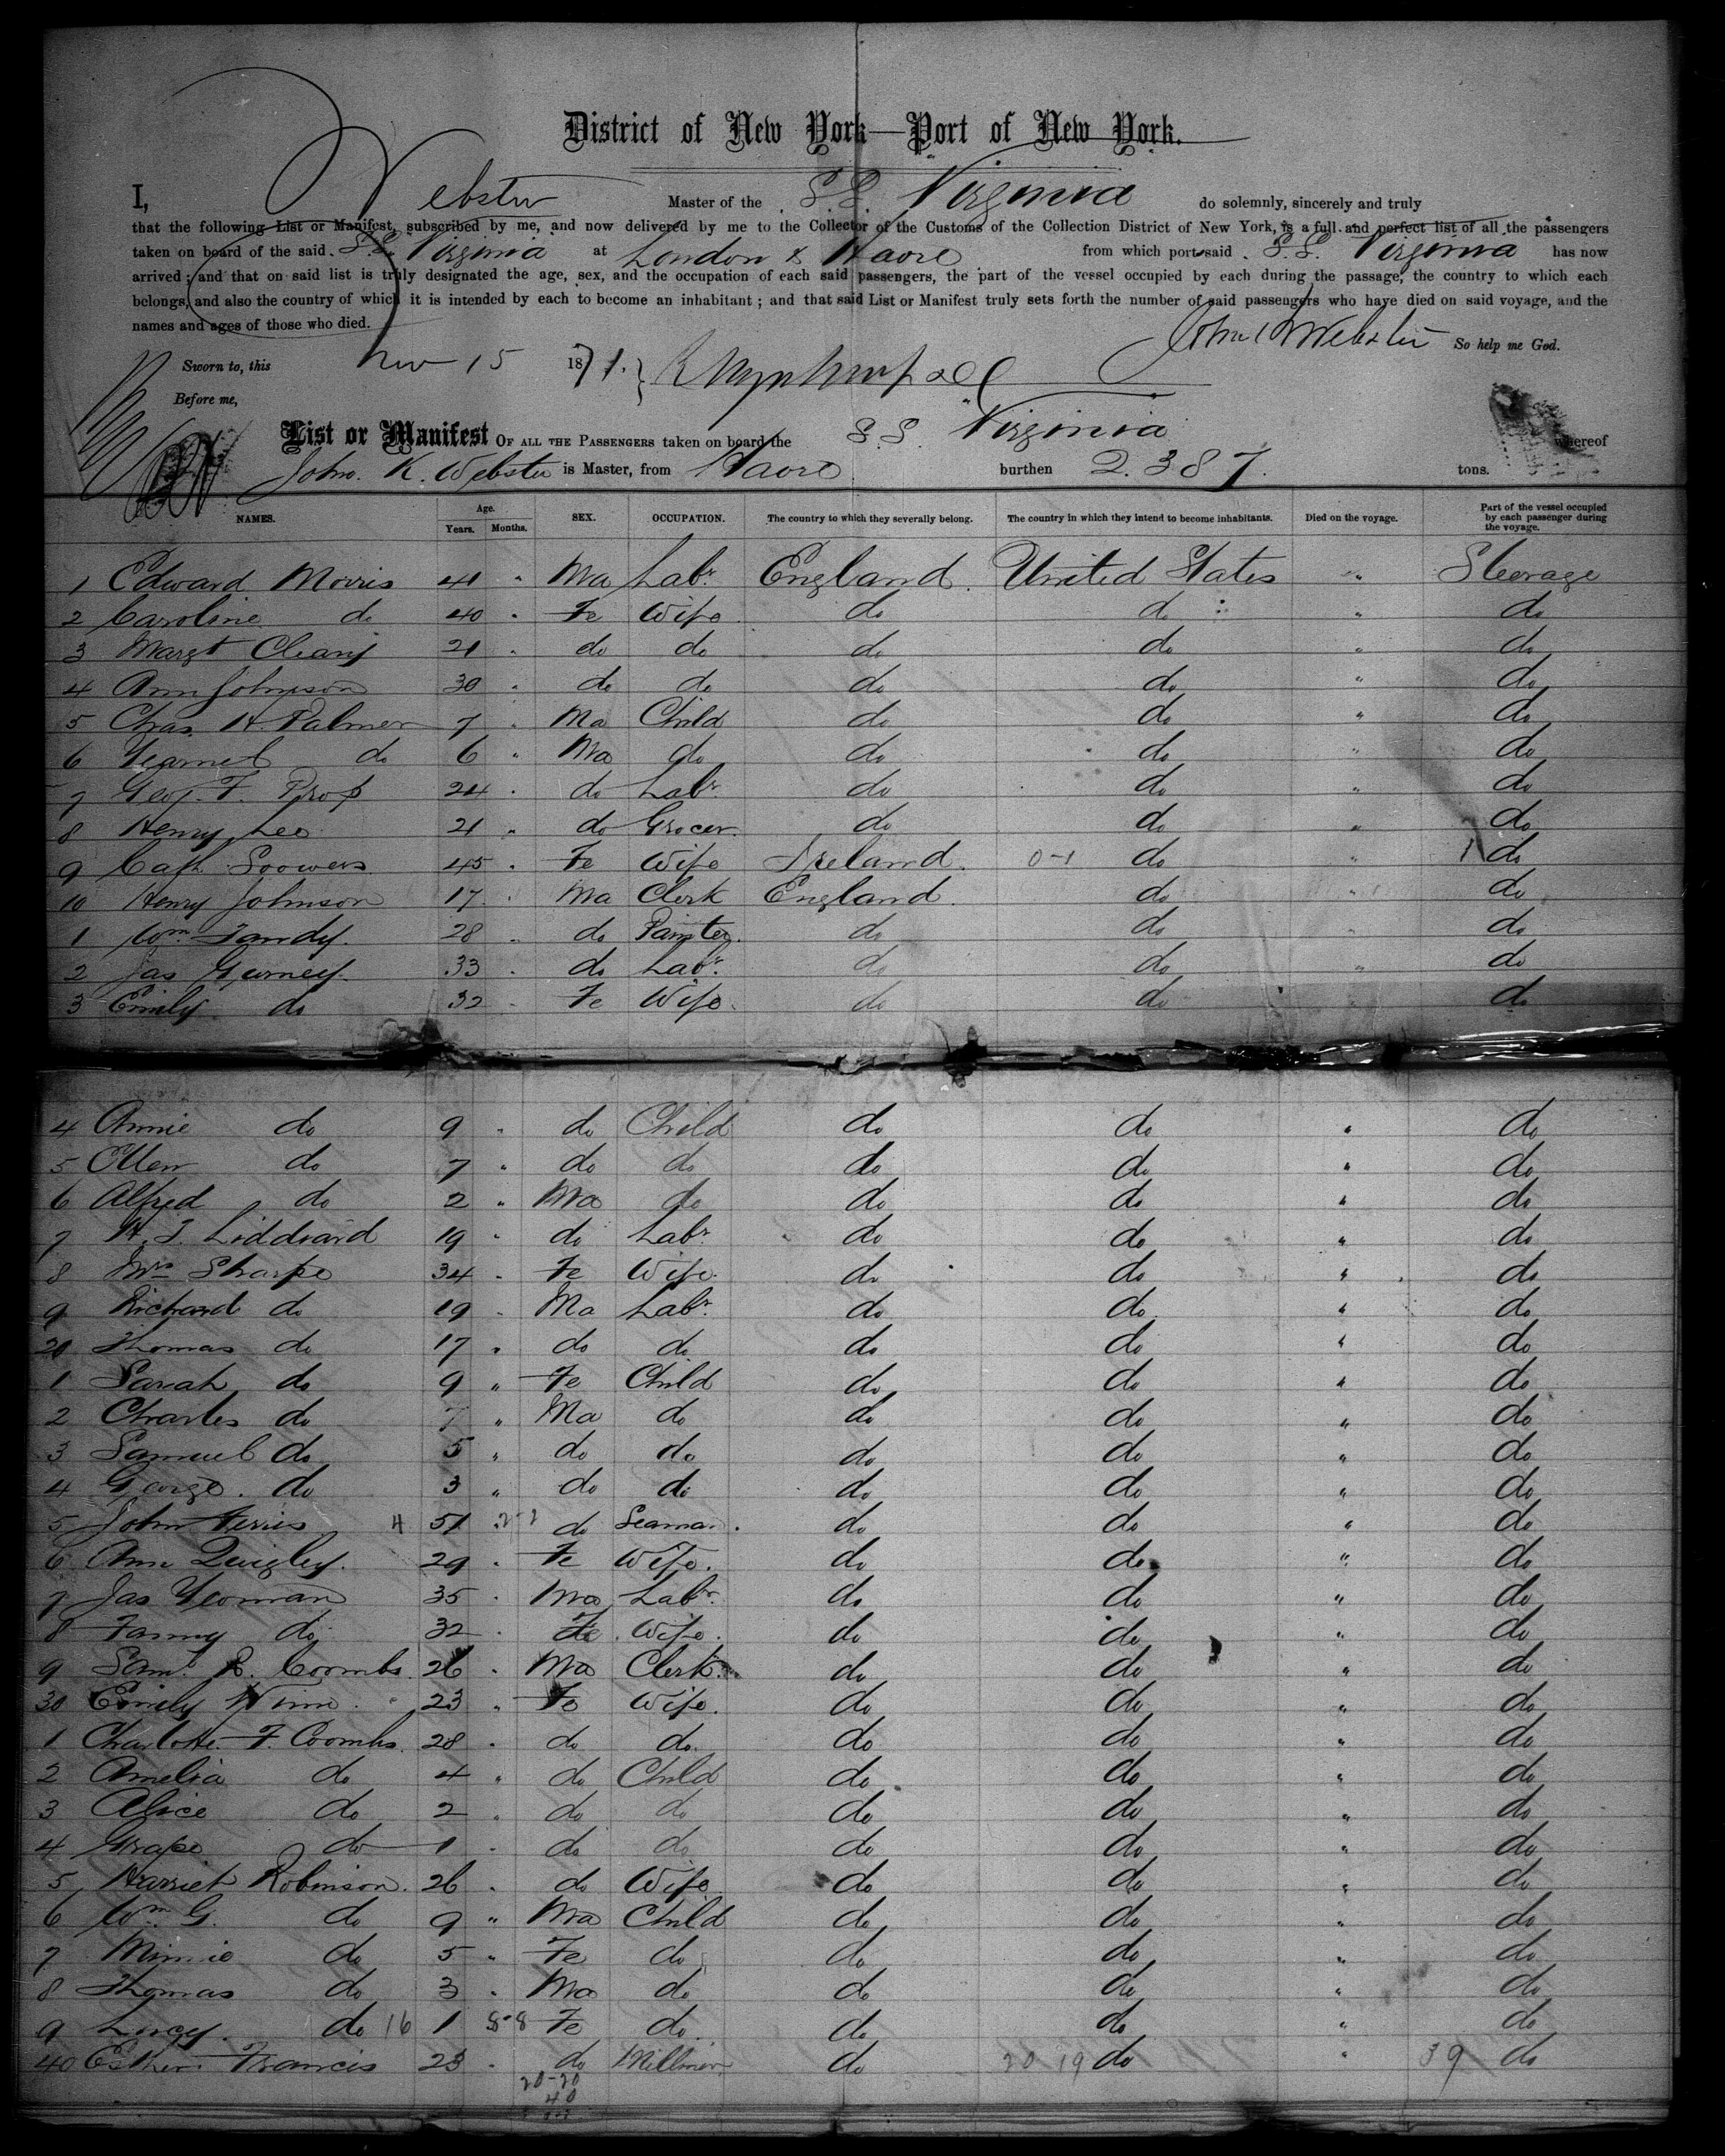 District of New York—Port of New York.
I, Webster Master of the S.S. Virginia do solemnly, sincerely and truly
that the following List or Manifest, subscribed by me, and now delivered by me to the Collector of the Customs of the Collection District of New York, is a full and perfect list of all the passengers
taken on board of the said S.S. Virginia at London & Havre from which port said S.S. Virginia has now
arrived; and that on said list is truly designated the age, sex, and the occupation of each said passengers, the part of the vessel occupied by each during the passage, the country to which each
belongs, and also the country of which it is intended by each to become an inhabitant; and that said List or Manifest truly sets forth the number of said passengers who have died on said voyage, and the
names and ages of those who died.
John K Webster So help me God.
Sworn to, this Nov 15 1871.
Before me,
List or Manifest OF ALL THE PASSENGERS taken on board the S.S. Virginia whereof
John. K. Webster is Master, from Havre burthen 2.387. tons.
NAMES. Age. Years. Months. SEX. OCCUPATION. The country to which they severally belong. The country in which they intend to become inhabitants. Died on the voyage. Part of the vessel occupied by each passenger during the voyage.
1 Edward Morris 41 " Ma Labr. England. United States " Steerage
2 Caroline do 40 " Fe Wife do do " do
3 Margt 21 " do do do do " do
4 Ann Johnson 30 " do do do do " do
5 Chas. H. Palmer 7 " Ma Child do do " do
6 do 6 " Ma do do do " do
7 Geo. F. 24 " do Labr. do do " do
8 Henry Lee 21 " do Grocer. do do " do
9 Cath 45 " Fe Wife Ireland. 0-1 do " 1 do
10 Henry Johnson 17 " Ma Clerk England. do " do
1 Wm. Tandy. 28 " do Painter. do do " do
2 Jas Gurney. 33 " do Labr. do do " do
3 Emily do 32 " Fe Wife. do do do
4 Annie do 9 " do Child do do " do
5 Ellen do 7 " do do do do " do
6 Alfred do 2 " Ma do do do " do
7 H. J. Liddiard 19 " do Labr. do do " do
8 Mrs Sharpe 34 " Fe Wife. do do " do
9 Richard do 19 " Ma Labr. do do " do
20 Thomas do 17 " do do do do " do
1 Sarah do 9 " Fe Child do do " do
2 Charles do 7 " Ma do do do " do
3 Samuel do 5 " do do do do " do
4 George. do 3 " do do do do " do
5 John Ferris 4 51 2-2 do Seaman. do do " do
6 Ann Quigley. 29 " Fe Wife. do do " do
7 Jas Yeoman 35 " Ma Labr. do do " do
8 Fanny do 32 " Fe Wife. do do " do
9 Saml. R. Coombs. 26 " Ma Clerk. do do " do
30 Emily Winn. 23 " Fe Wife. do do " do
1 Charlotte. F. Coombs. 28 " do do. do do " do
2 Amelia do 4 " do Child do do " do
3 Alice do 2 " do do do do " do
4 do 1 " do do do do " do
5 Harriet Robinson. 26 " do Wife do do " do
6 Wm. G. do 9 " Ma Child do do " do
7 Minnie do 5 " Fe do do do " do
8 Thomas do 3 " Ma do do do " do
9 Lucy. do 16 1 8-8 Fe do. do do " do
40 Esther Francis 23 " do Milliner do 20 19 do " 39 do
20-20
40